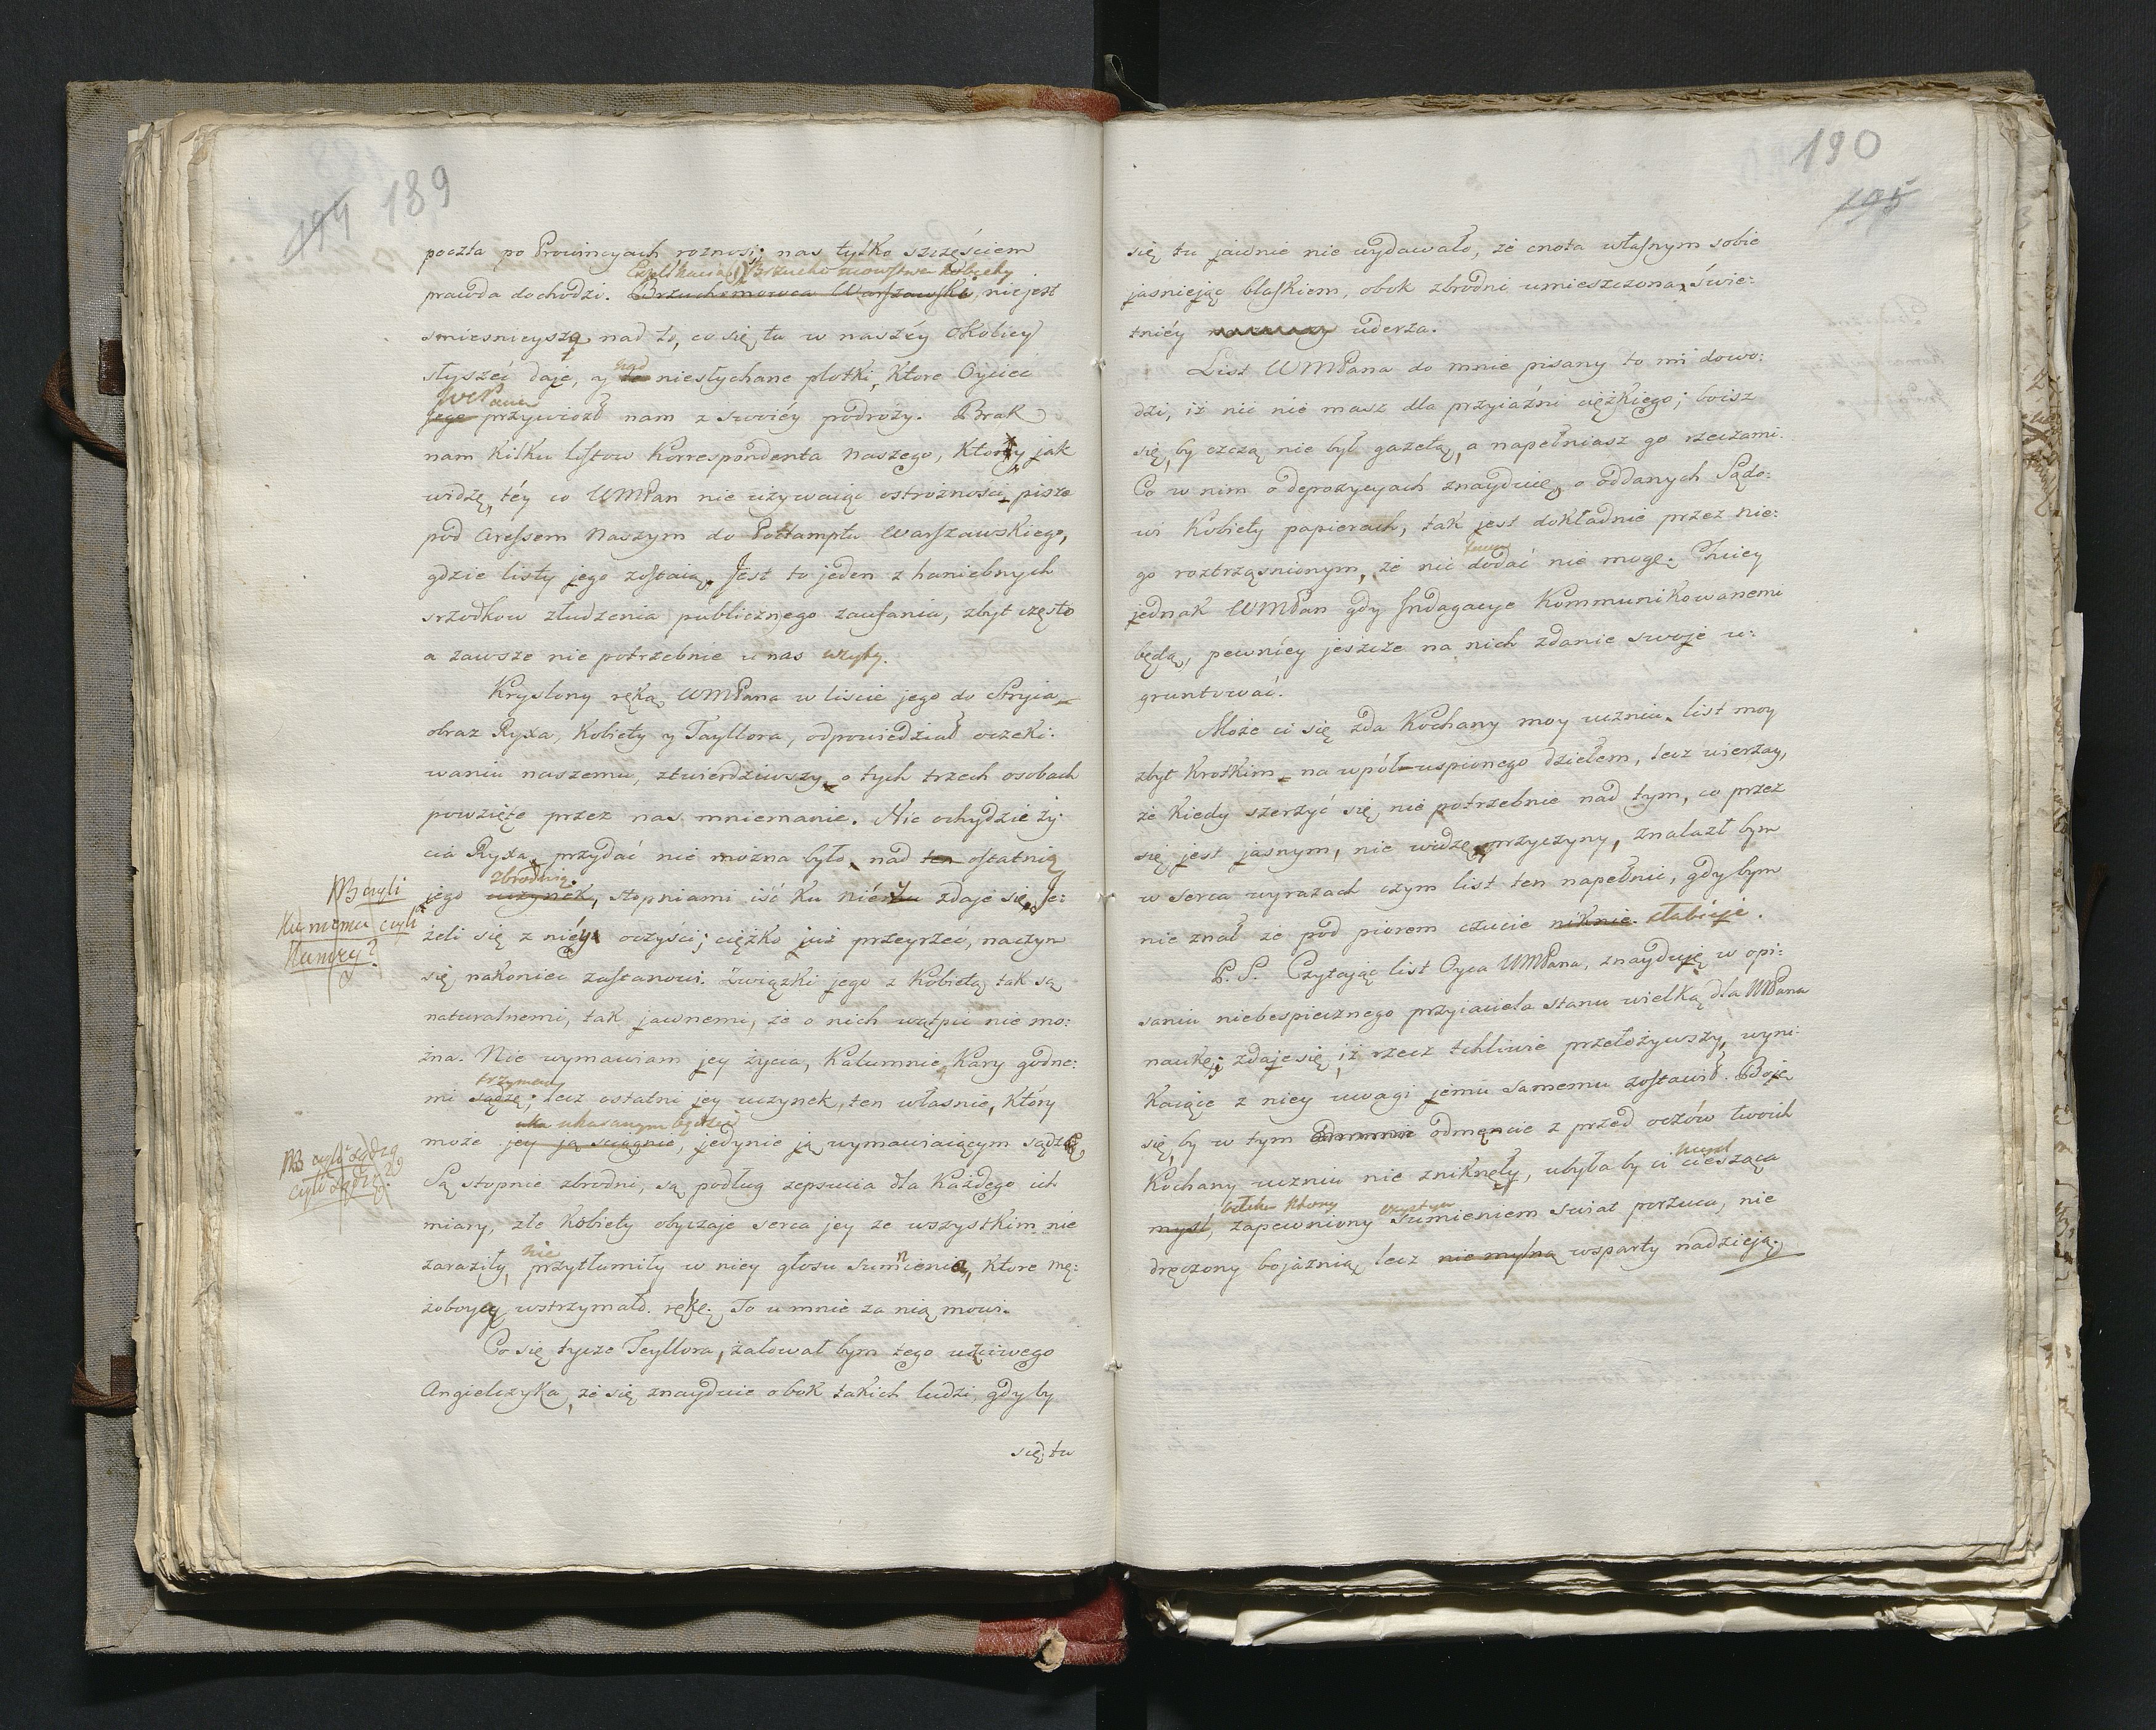 194 189
poczta po Prowincyach roznosi; nas tylko szczęściem
Brzucho mowstwa kobiety
prawda dochodzi. Brzuchomowca Warszawski, nie jest
smiesnieyszą nad to, co się tu w naszéy okolicy
nad
słyszéć daje, y te niesłychane plotki, które Oyciec
WcPana
jego przywiozł nam z swoiey podroży. Brak
nam kilku listow Korrespondenta Naszego, ktory jak
widzę, téy co WMPan nie używaiąc ostrożności pisze
pod adressem Naszym do Pocztamptu Warszawskiego,
gdzie listy jego zostaią. Jest to jeden z haniebnych
srzodkow złudzenia publicznego zaufania, zbyt często
a zawsze nie potrzebnie u nas użyty.
Kryslony ręką WMPana w liscie jego do Stryia
obraz Ryxa, Kobiety y Tayllora, odpowiedział oczeki-
waniu naszemu, ztwierdziwszy o tych trzech osobach
powzięte przez nas mniemanie. Nic ochydzie ży
cia Ryxa przydać nie można było, nad ten ostatnią
zbrodnią.
jego uczynek, stopniami iść ku niéy zdaje się. Je:
NB czyli
ku niemu czyli
żeli się z niéy oczyści; ciężko już przeyrzeć, na czym
się nakoniec zastanowi. Związki jego z Kobietą tak są
naturalnemi, tak jawnemi, że o nich wątpić nie mo:
żna. Nie wymawiam jey życia, Kalumnie kary godne:
trzymam
mi sądzę; lecz ostatni jey uczynek, ten własnie, który
ukasanym będzie
może jey ją sciągnie, jedynie ją wymawiaiącym sądzę
NB czyli sądzą
czyli sądzę?
Są stopnie zbrodni, są podług zepsucia dla Każdego ich
miary, złe kobiety obyczaje serca jey ze wszystkim nie
nie
zaraziły, przytłumiły w niey głosu sumnienia, ktore mę:
żoboycy wstrzymało rękę. To u mnie za nią mowi.
Co się tycze Teyllora, żałował bym tego uczciwego
Angielczyka, że się znayduie obok takich ludzi, gdyby
się tu
190
195
się tu jawnie nie wydawało, że cnota własnym sobie
jasniejąc blaskiem, obok zbrodni umieszczona, świe:
tniéy uderza.
List WMPana do mnie pisany to mi dowo:
dzi, iż nic nie masz dla przyiaźni ciężkiego; boisz
się, by czczą nie był gazetą, a napełniasz go rzeczami.
Co w nim o depozycyach znayduię, o oddanych Sądo:
wi Kobiety papierach, tak jest dokładnie przez nie:
go roztrząsnionym, że nic dodać nie mogę; Zmiey
jednak WMPan gdy Indagacye Kommunikowanemi
będą, pewniéy jeszcze na nich zdanie swoje u:
gruntować.
Może ci się zda Kochany moy uczniu, list moy
zbyt krotkim na wpół uspionego dziełem, lecz wierzay,
że kiedy szerzyć się nie potrzebnie nad tym, co przez
się jest jasnym, nie widzę przyczyny, znalazł bym
w serca wyrazach czym list ten napełnić, gdy bym
nie znał że pod piorem czucie niknie. słabieje.
P. S. Czytając list Oyca WMPana, znayduję w opi:
saniu niebespiecznego przyiaciela stanu wielką dla WMPana
naukę; zdaje się, iż rzecz tchliwie przełożywszy, wyni-
kaiące z niey uwagi jemu samemu zostawił. Boję
się, by w tym odmęncie z przed oczów twoich
mysl
Kochany uczniu nie zniknęły, ubyła by ci ciesząca
czystym
mysl, zapewniony sumieniem swiat porzuca, nie
dręczony bojaznią, lecz nie mylną wsparty nadzieją.